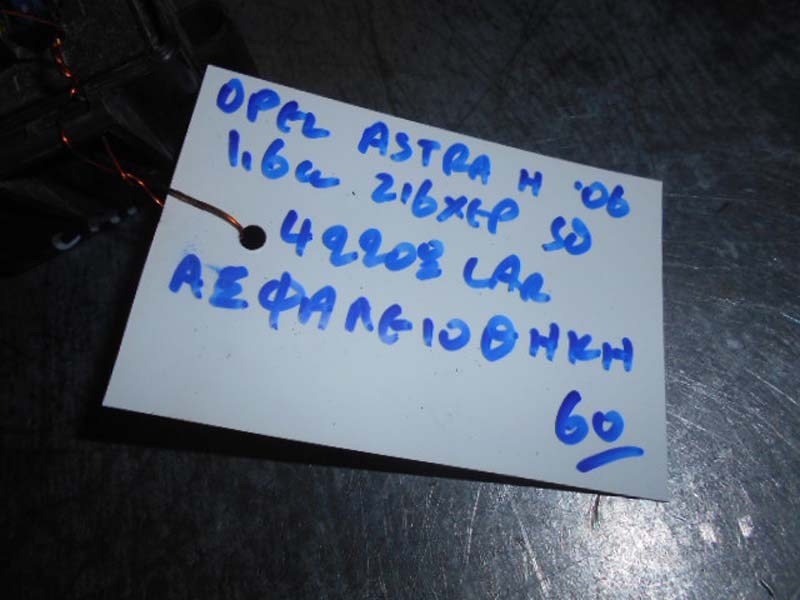 OPEL ASTRA H '06
1,6cc Z16XEP 5D
42208 LAR
ΑΣΦΑΛΕΙΟΘΗΚΗ
60